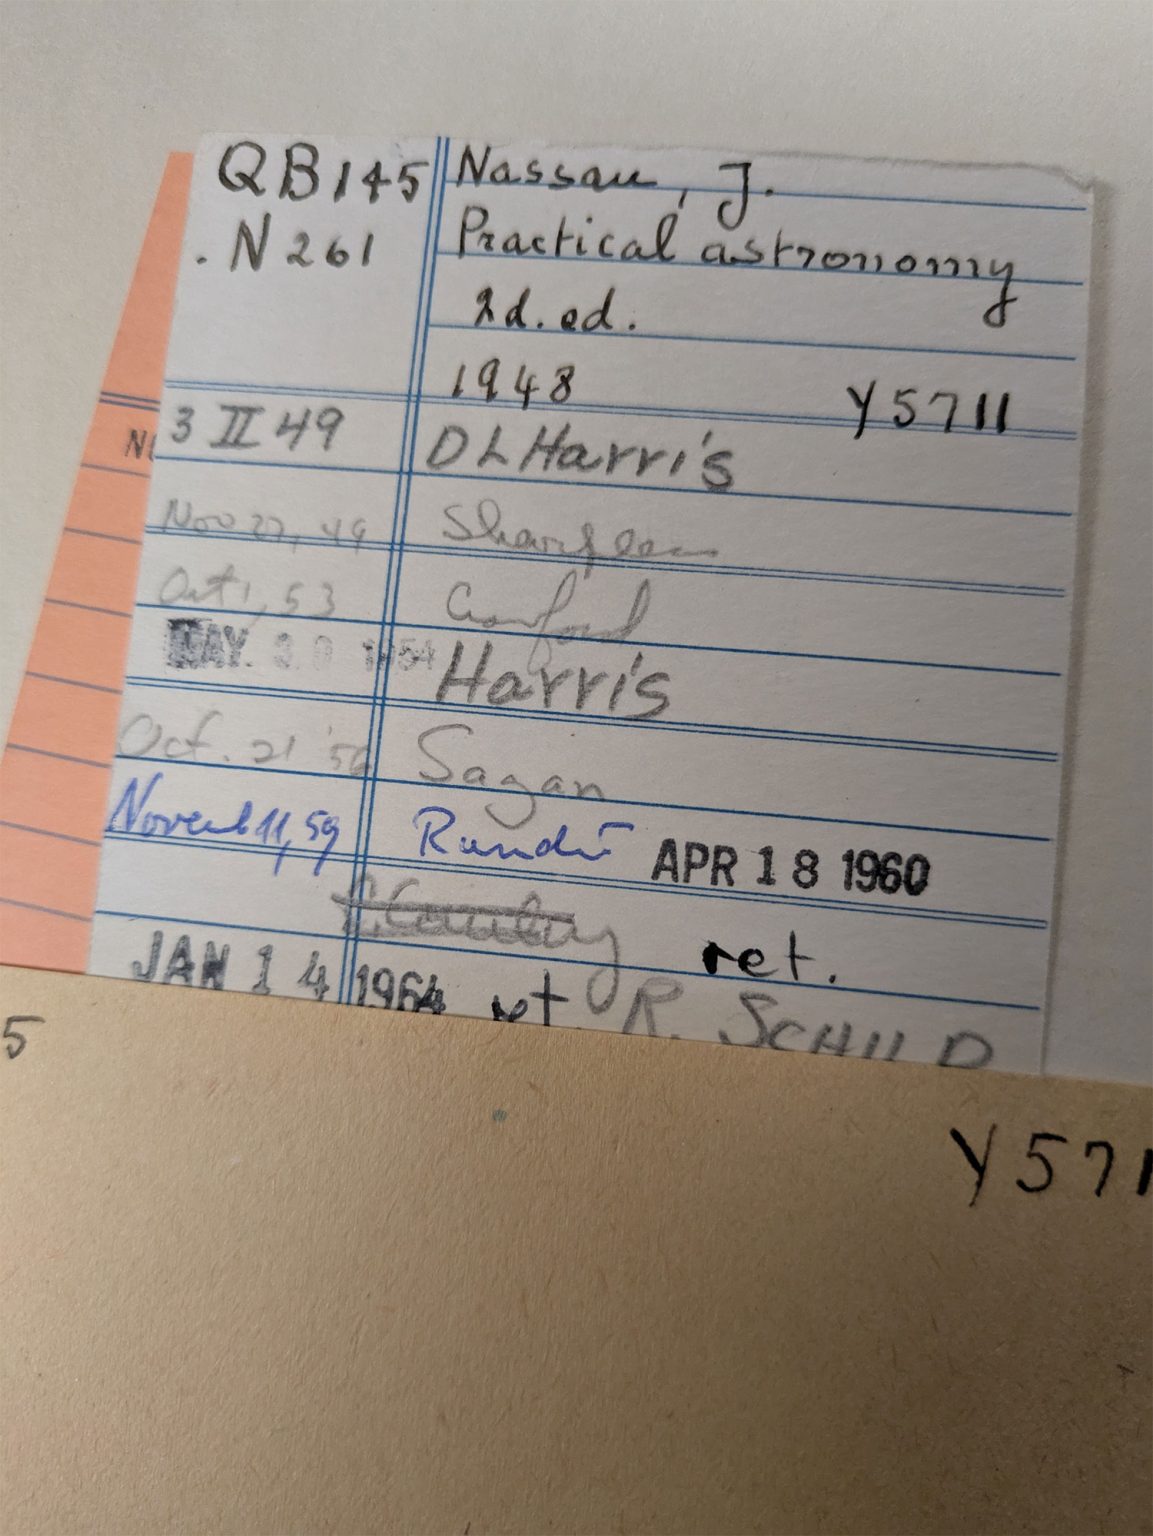 QB145 Nassau, J.
.N261 Practical astronomy
2d. ed.
1948 Y5711
3 II 49 D L Harris
Nov 27, 49
Oct 1, 53 Crawford
MAY 30 1954 Harris
Oct. 21 '56 Sagan
APR 18 1960
ret.
JAN 14 1964 ret R. SCHILD
5
Y571